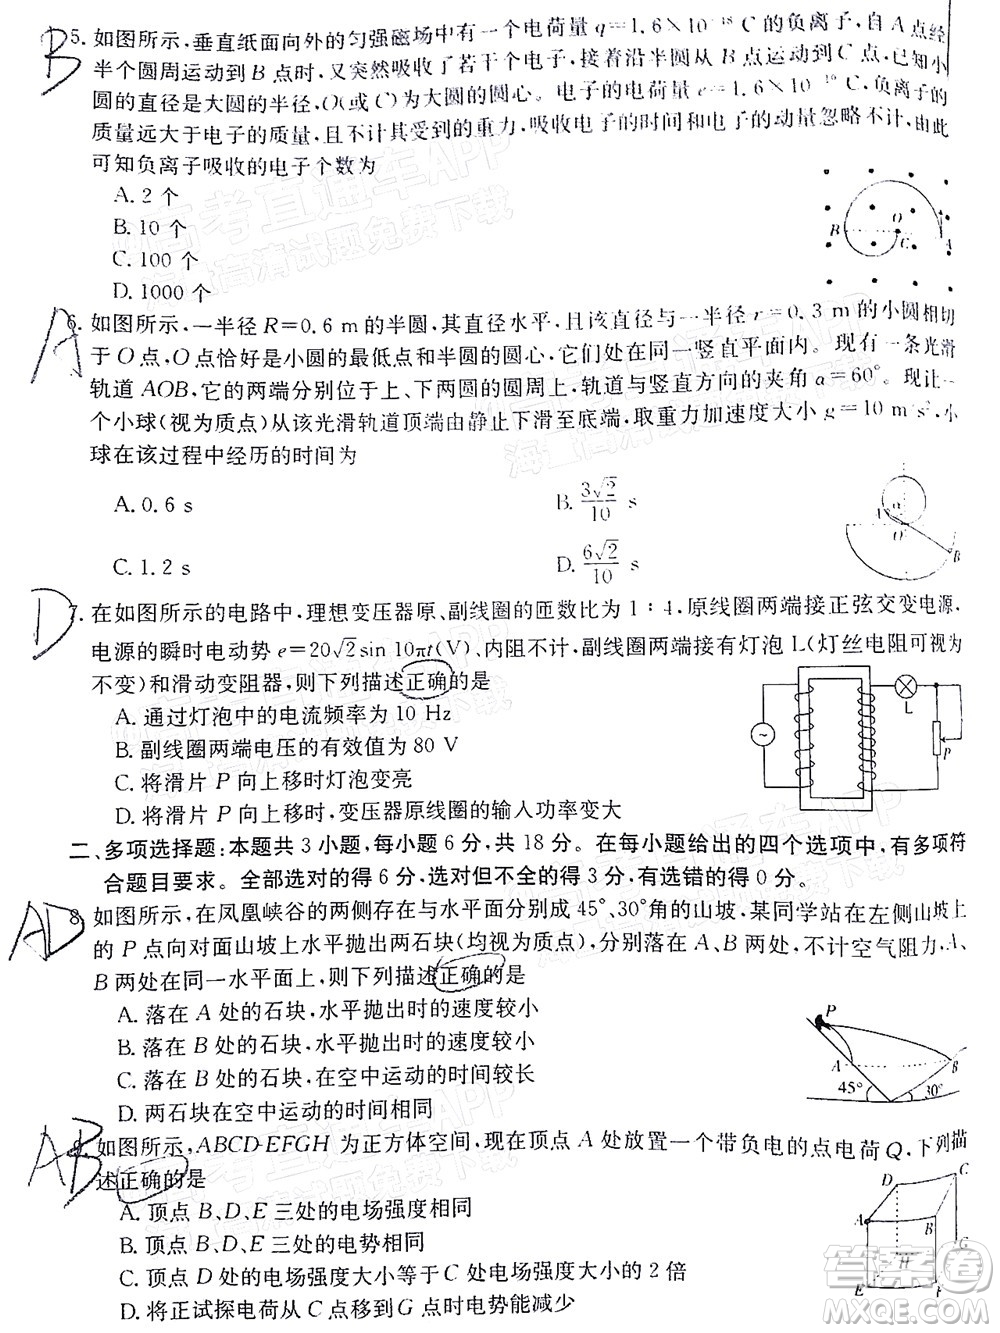 B
5. 如图所示,垂直纸面向外的匀强磁场中有一个电荷量q=1.6×10⁻¹⁸ C的负离子,自A点经
半个圆周运动到B点时,又突然吸收了若干个电子,接着沿半圆从B点运动到C点,已知小
圆的直径是大圆的半径,O(或C)为大圆的圆心。电子的电荷量e=1.6×10⁻¹⁹ C,离子的
质量远大于电子的质量,且不计其受到的重力,吸收电子的时间和电子的动量忽略不计,由此
可知负离子吸收的电子个数为
A. 2个
B. 10个
C. 100个
D. 1000个
B O C A
A
6. 如图所示,一半径R=0.6 m的半圆,其直径水平,且该直径与半径r=0.3 m的小圆相切
于O点,O点恰好是小圆的最低点和半圆的圆心,它们处在同一竖直平面内。现有一条光滑
轨道AOB,它的两端分别位于上、下两圆的圆周上,轨道与竖直方向的夹角α=60°。现让一
个小球(视为质点)从该光滑轨道顶端由静止下滑至底端,取重力加速度大小g=10 m/s²,小
球在该过程中经历的时间为
A. 0.6 s
B. 3√2/10 s
C. 1.2 s
D. 6√2/10 s
A α O B
D
7. 在如图所示的电路中,理想变压器原、副线圈的匝数比为1∶4,原线圈两端接正弦交变电源,
电源的瞬时电动势e=20√2sin 10πt(V)、内阻不计,副线圈两端接有灯泡L(灯丝电阻可视为
不变)和滑动变阻器,则下列描述正确的是
A. 通过灯泡中的电流频率为10 Hz
B. 副线圈两端电压的有效值为80 V
C. 将滑片P向上移时灯泡变亮
D. 将滑片P向上移时,变压器原线圈的输入功率变大
~ L P
二、多项选择题:本题共3小题,每小题6分,共18分。在每小题给出的四个选项中,有多项符
合题目要求。全部选对的得6分,选对但不全的得3分,有选错的得0分。
AD
8. 如图所示,在凤凰峡谷的两侧存在与水平面分别成45°、30°角的山坡,某同学站在左侧山坡上
的P点向对面山坡上水平抛出两石块(均视为质点),分别落在A、B两处,不计空气阻力,A、
B两处在同一水平面上,则下列描述正确的是
A. 落在A处的石块,水平抛出时的速度较小
B. 落在B处的石块,水平抛出时的速度较小
C. 落在B处的石块,在空中运动的时间较长
D. 两石块在空中运动的时间相同
P A B 45° 30°
AB
9. 如图所示,ABCD-EFGH为正方体空间,现在顶点A处放置一个带负电的点电荷Q,下列描
述正确的是
A. 顶点B、D、E三处的电场强度相同
B. 顶点B、D、E三处的电势相同
C. 顶点D处电场强度大小等于C处电场强度大小的2倍
D. 将正试探电荷从C点移到G点电势能减少
D C A B G H E F
高考直通车APP
海量高清试题免费下载
答案圈
MXQE.COM